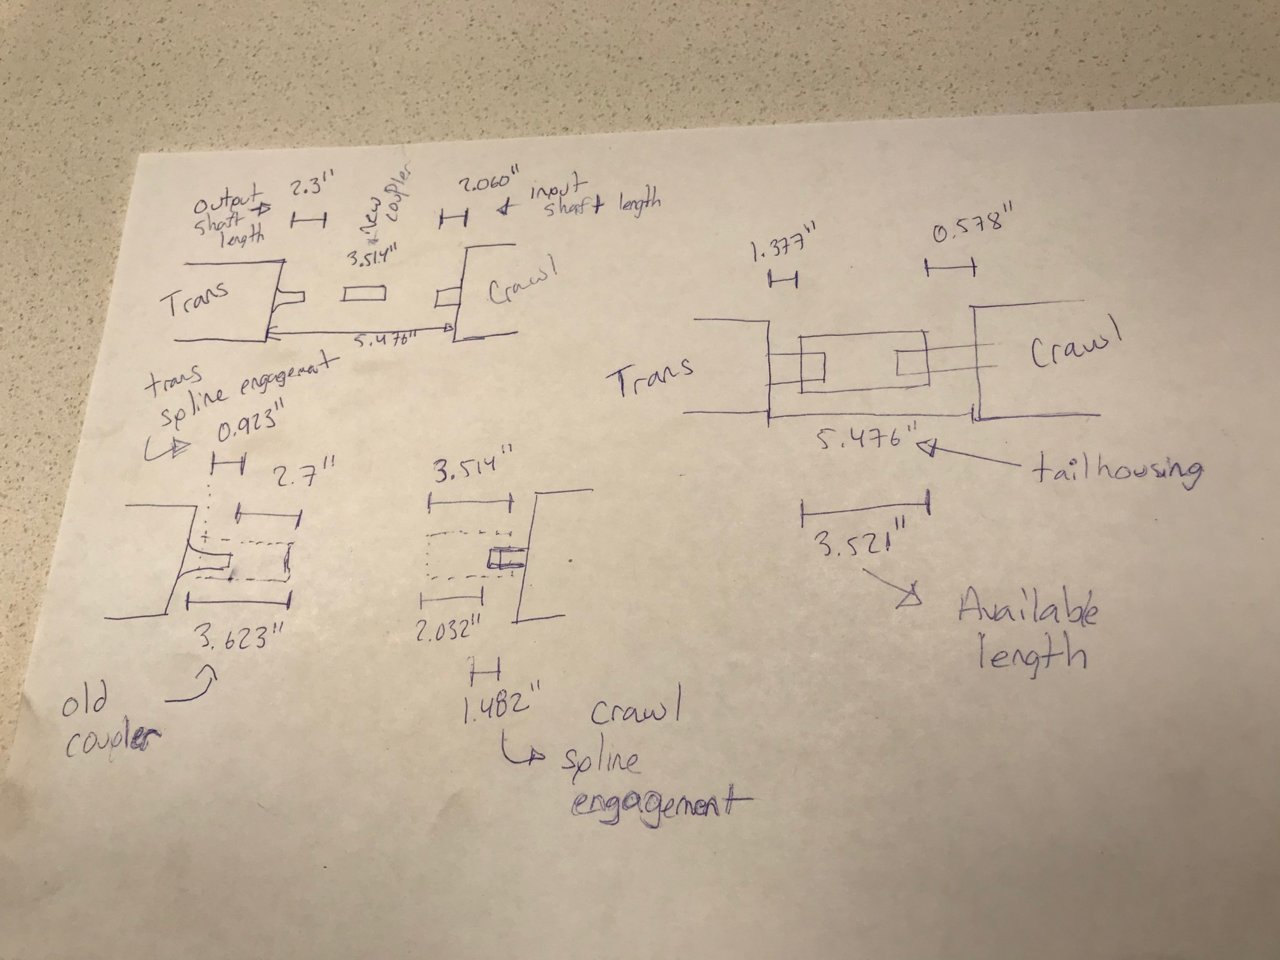 output
shaft
length
2.3"
New
coupler
3.514"
2.060"
input
shaft length
Trans
Crawl
5.476"
trans
spline engagement
0.923"
2.7"
3.623"
old
coupler
3.514"
2.032"
1.482"
crawl
spline
engagement
1.377"
0.578"
Trans
Crawl
5.476"
tailhousing
3.521"
Available
length